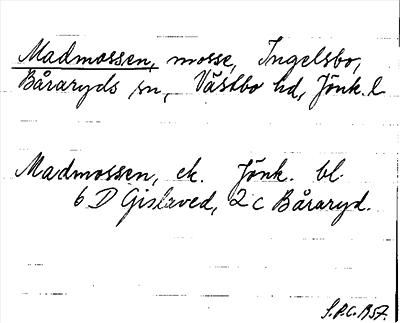 Madmossen, mosse, Ingelsbo,
Båraryds sn, Västbo hd, Jönk. l
Madmossen, ek. Jönk. bl.
6 D Gislaved, 2 c Båraryd.
S.P.C. 1957.